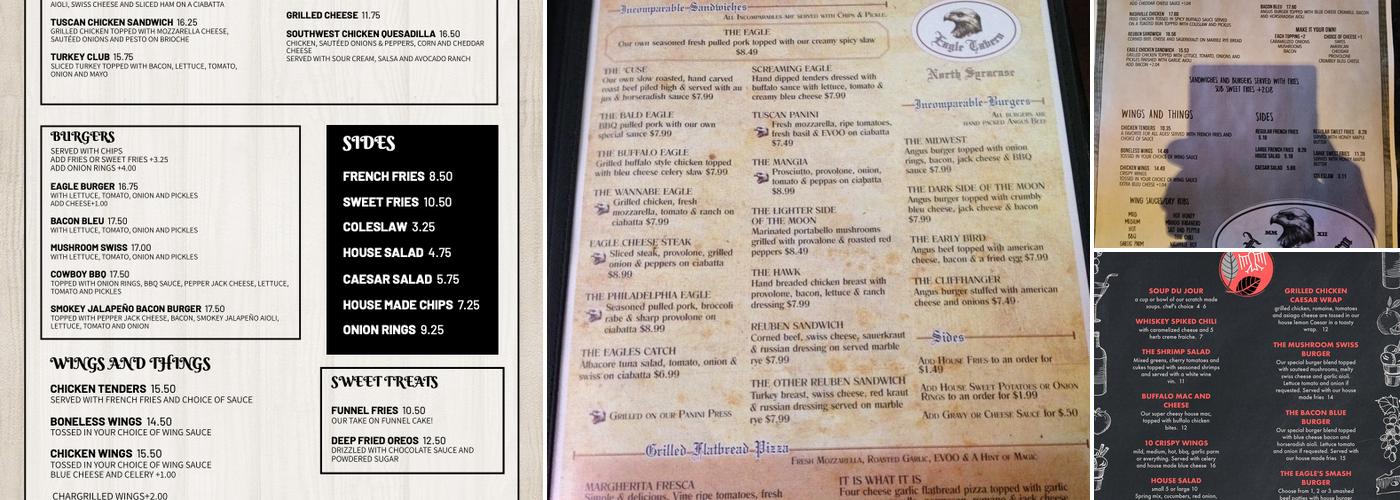 AIOLI, SWISS AND HAM ON A CIABATTA
TUSCAN CHICKEN SANDWICH 16.25
GRILLED CHICKEN TOPPED WITH MOZZARELLA CHEESE,
SAUTÉED ONIONS AND PESTO ON BRIOCHE
TURKEY CLUB 15.75
SLICED TURKEY TOPPED WITH BACON, LETTUCE, TOMATO,
ONION AND MAYO
GRILLED CHEESE 11.75
SOUTHWEST CHICKEN QUESADILLA 16.50
CHICKEN, SAUTÉED ONIONS & PEPPERS, CORN AND CHEDDAR
CHEESE
SERVED WITH SOUR CREAM, SALSA AND AVOCADO RANCH
BURGERS
SERVED WITH CHIPS
ADD FRIES OR SWEET FRIES +3.25
ADD ONION RINGS +4.00
EAGLE BURGER 16.75
WITH LETTUCE, TOMATO, ONION AND PICKLES
ADD CHEESE+1.00
BACON BLEU 17.50
WITH LETTUCE, TOMATO, ONION AND PICKLES
MUSHROOM SWISS 17.00
WITH LETTUCE, TOMATO, ONION AND PICKLES
COWBOY BBQ 17.50
TOPPED WITH ONION RINGS, BBQ SAUCE, PEPPER JACK CHEESE, LETTUCE,
TOMATO AND PICKLES
SMOKEY JALAPEÑO BACON BURGER 17.50
TOPPED WITH PEPPER JACK CHEESE, BACON, SMOKEY JALAPEÑO AIOLI,
LETTUCE, TOMATO AND ONION
SIDES
FRENCH FRIES 8.50
SWEET FRIES 10.50
COLESLAW 3.25
HOUSE SALAD 4.75
CAESAR SALAD 5.75
HOUSE MADE CHIPS 7.25
ONION RINGS 9.25
WINGS AND THINGS
CHICKEN TENDERS 15.50
SERVED WITH FRENCH FRIES AND CHOICE OF SAUCE
BONELESS WINGS 14.50
TOSSED IN YOUR CHOICE OF WING SAUCE
CHICKEN WINGS 15.50
TOSSED IN YOUR CHOICE OF WING SAUCE
BLUE CHEESE AND CELERY +1.00
CHARGRILLED WINGS+2.00
SWEET TREATS
FUNNEL FRIES 10.50
OUR TAKE ON FUNNEL CAKE!
DEEP FRIED OREOS 12.50
DRIZZLED WITH CHOCOLATE SAUCE AND
POWDERED SUGAR
Incomparable-Sandwiches
ALL INCOMPARABLES ARE SERVED WITH CHIPS & PICKLE.
THE EAGLE
Our own seasoned fresh pulled pork topped with our creamy spicy slaw
$8.49
THE 'CUSE
Our own slow roasted, hand carved
roast beef piled high & served with au
jus & horseradish sauce $7.99
THE BALD EAGLE
BBQ pulled pork with our own
special sauce $7.99
THE BUFFALO EAGLE
Grilled buffalo style chicken topped
with bleu cheese celery slaw $7.99
THE WANNABE EAGLE
Grilled chicken, fresh
mozzarella, tomato & ranch on
ciabatta $7.99
EAGLE CHEESE STEAK
Sliced steak, provolone, grilled
onion & peppers on ciabatta
$8.99
THE PHILADELPHIA EAGLE
Seasoned pulled pork, broccoli
rabe & sharp provolone on
ciabatta $8.99
THE EAGLES CATCH
Albacore tuna salad, tomato, onion &
swiss on ciabatta $6.99
GRILLED ON OUR PANINI PRESS
SCREAMING EAGLE
Hand dipped tenders dressed with
buffalo sauce with lettuce, tomato &
creamy bleu cheese $7.99
TUSCAN PANINI
Fresh mozzarella, ripe tomatoes,
fresh basil & EVOO on ciabatta
$7.49
THE MANGIA
Prosciutto, provolone, onion,
tomato & peppas on ciabatta
$8.99
THE LIGHTER SIDE
OF THE MOON
Marinated portabello mushrooms
grilled with provalone & roasted red
peppers $8.49
THE HAWK
Hand breaded chicken breast with
provolone, bacon, lettuce & ranch
dressing $7.99
REUBEN SANDWICH
Corned beef, swiss cheese, sauerkraut
& russian dressing on served marble
rye $7.99
THE OTHER REUBEN SANDWICH
Turkey breast, swiss cheese, red kraut
& russian dressing served on marble
rye $7.99
Eagle Tavern
North Syracuse
Incomparable-Burgers
ALL BURGERS ARE
HAND PACKED ANGUS BEEF
THE MIDWEST
Angus burger topped with onion
rings, bacon, jack cheese & BBQ
sauce $7.99
THE DARK SIDE OF THE MOON
Angus burger topped with crumbly
bleu cheese, jack cheese & bacon
$7.99
THE EARLY BIRD
Angus beef topped with american
cheese, bacon & a fried egg $7.99
THE CLIFFHANGER
Angus burger stuffed with american
cheese and onions $7.49
Sides
ADD HOUSE FRIES TO AN ORDER FOR
$1.49
ADD HOUSE SWEET POTATOES OR ONION
RINGS TO AN ORDER FOR $1.99
ADD GRAVY OR CHEESE SAUCE FOR $.50
Grilled Flatbread Pizza
FRESH MOZZARELLA, ROASTED GARLIC, EVOO & A HINT OF MAGIC
MARGHERITA FRESCA
Simple & delicious. Vine ripe tomatoes, fresh
IT IS WHAT IT IS
Four cheese garlic flatbread pizza topped with garlic
NASHVILLE CHICKEN 17.60
FRIED CHICKEN TOSSED IN SPICY BUFFALO SAUCE SERVED
ON A TOASTED BUN TOPPED WITH COLESLAW AND PICKLES
REUBEN SANDWICH 16.56
CORNED BEEF, CHEESE AND SAUERKRAUT ON MARBLE RYE BREAD
EAGLE CHICKEN SANDWICH 15.53
ADD BACON +2.04
BACON BLEU 17.60
MAKE IT YOUR OWN!
EACH TOPPING +2
CARAMELIZED ONIONS
MUSHROOMS
BACON
CHOICE OF CHEESE +1
SWISS
AMERICAN
CHEDDAR
PROVOLONE
CRUMBLY BLEU CHEESE
SANDWICHES AND BURGERS SERVED WITH FRIES
SUB SWEET FRIES +2.08
WINGS AND THINGS
CHICKEN TENDERS 10.35
A FAVORITE FOR ALL AGES! SERVED WITH FRENCH FRIES AND
CHOICE OF SAUCE
BONELESS WINGS 14.49
TOSSED IN YOUR CHOICE OF WING SAUCE
CHICKEN WINGS
CRISPY WINGS
TOSSED IN YOUR CHOICE OF WING SAUCE
EXTRA BLEU CHEESE +1.04
SIDES
REGULAR FRENCH FRIES
5.18
LARGE FRENCH FRIES 8.28
HOUSE SALAD 5.18
CAESAR SALAD
REGULAR SWEET FRIES
SERVED WITH HONEY MAPLE
BUTTER
LARGE SWEET FRIES 11.39
SERVED WITH HONEY MAPLE
BUTTER
COLESLAW 3.11
WING SAUCES/DRY RUBS
MILD
MEDIUM
HOT
BBQ
GARLIC PARM
HOT HONEY
MANGO HABANERO
SALT AND PEPPER
MM XII
SOUP DU JOUR
a cup or bowl of our scratch made
soups. chef's choice 4 6
WHISKEY SPIKED CHILI
with caramelized cheese and 5
herb creme fraiche. 7
THE SHRIMP SALAD
Mixed greens, cherry tomatoes and
cukes topped with seasoned shrimps
and served with a white wine
vin. 11
BUFFALO MAC AND
CHEESE
Our super cheesy house mac,
topped with buffalo chicken
bites. 12
10 CRISPY WINGS
mild, medium, hot, bbq, garlic parm
or everything. Served with celery
and house made blue cheese 16
HOUSE SALAD
small 5 or large 10
Spring mix, cucumbers, red onion,
GRILLED CHICKEN
CAESAR WRAP
grilled chicken, romaine, tomatoes
and asiago cheese are tossed in our
house lemon Caesar in a toasty
wrap. 12
THE MUSHROOM SWISS
BURGER
Our special burger blend topped
with sauteed mushrooms, melty
swiss cheese and garlic aioli.
Lettuce tomato and onion if
requested. Served with our
house made fries 14
THE BACON BLUE
BURGER
Our special burger blend topped
with blue cheese bacon and
garlic aioli. Lettuce tomato
and onion if requested. Served with
our house made fries 15
THE EAGLE'S SMASH
BURGER
Choose from 1, 2 or 3 smashed
beef patties with house burger